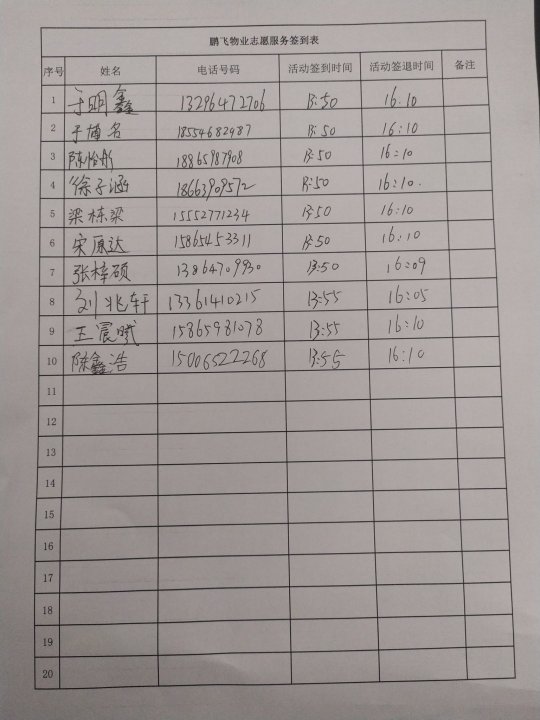 鹏飞物业志愿服务签到表
序号 姓名 电话号码 活动签到时间 活动签退时间 备注
1 于明鑫 13296472706 13:50 16:10
2 于 名 18554682487 13:50 16:10
3 陈怡彤 18865987908 13:50 16:10
4 徐子涵 18663909572 13:50 16:10.
5 梁栋梁 15552771234 13:50 16:10
6 宋原达 15865453311 13:50 16:10
7 张梓硕 13864709930 13:50 16:09
8 刘兆轩 13361410215 13:55 16:05
9 王宸曦 15865981078 13:55 16:10
10 陈鑫浩 15006522268 13:55 16:10
11
12
13
14
15
16
17
18
19
20